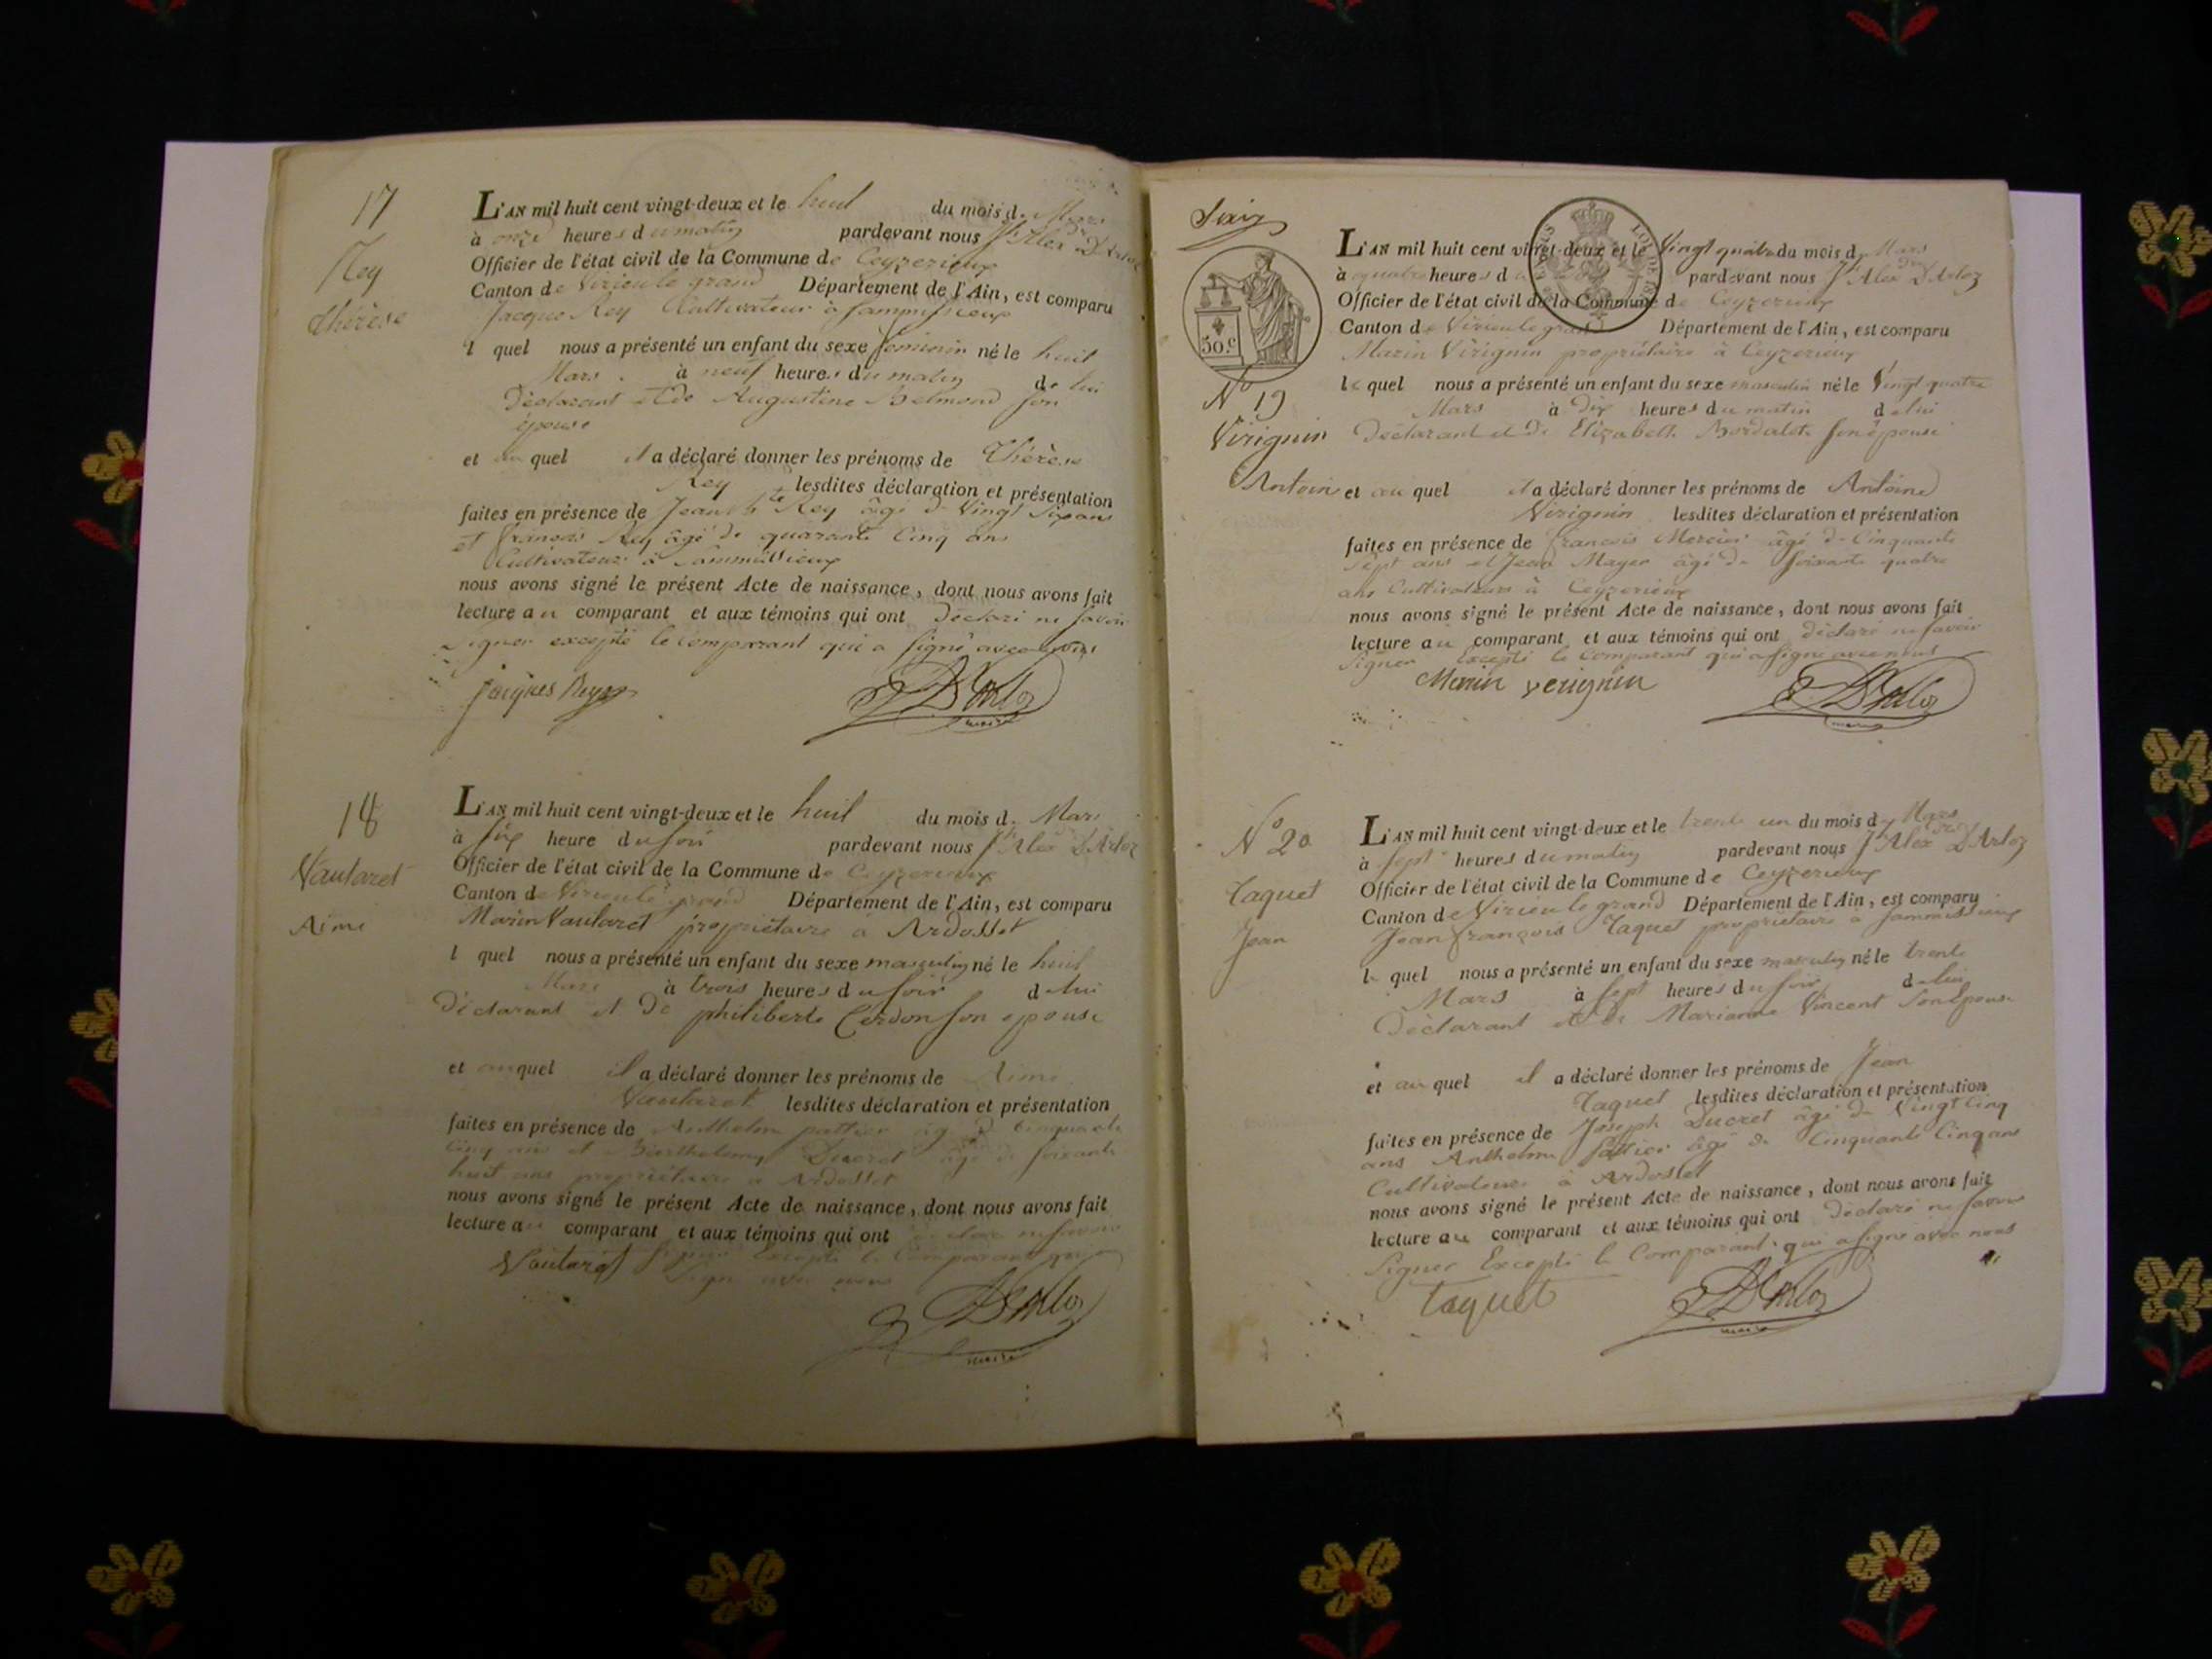 17
Rey
thérèse
L'AN mil huit cent vingt-deux et le huit du mois de Mars
à onze heures du matin pardevant nous Jh Alexdre D'Arloz
Officier de l'état civil de la Commune de Ceyzerieux
Canton de Virieu le grand Département de l'Ain, est comparu
Jacque Rey Cultivateur à
l quel nous a présenté un enfant du sexe feminin né le huit
Mars à neuf heures du matin de lui
Déclarant et de Augustine Belmond son
épouse
et au quel il a déclaré donner les prénoms de thérèse
Rey lesdites déclaration et présentation
faites en présence de Jean Bte Rey âgé de Vingt Six ans
et francois Rey âgé de quarante Cinq ans
Cultivateurs à Sammissieux
nous avons signé le présent Acte de naissance, dont nous avons fait
lecture au comparant et aux témoins qui ont Déclaré ne savoir
signer excepté le Comparant qui a signé avec nous
jacques Rey
D'Arloz
maire
18
Vautaret
Aimé
L'AN mil huit cent vingt-deux et le huit du mois de Mars
à six heure du soir pardevant nous Jh Alexdre D'Arloz
Officier de l'état civil de la Commune de Ceyzerieux
Canton de Virieu le grand Département de l'Ain, est comparu
Marin Vautaret propriétaire à Ardosset
l quel nous a présenté un enfant du sexe masculin né le huit
Mars à trois heures du soir de lui
Déclarant et de philiberte Cerdon son epouse
et au quel il a déclaré donner les prénoms de Aimé
Vautaret lesdites déclaration et présentation
faites en présence de Anthelme pattier âgé de Cinquante
Cinq ans et Barthelemy Ducret âgé de soixante
huit ans propriétaires à Ardosset
nous avons signé le présent Acte de naissance, dont nous avons fait
lecture au comparant et aux témoins qui ont déclaré ne savoir
Vautaret signer Excepté le Comparant qui a
signé avec nous
D'Arloz
maire
50.c
No 19
Virignin
Antoine
L'AN mil huit cent vingt-deux et le Vingt quatre du mois de Mars
à quatre heures d pardevant nous Jh Alexdre D'Arloz
Officier de l'état civil de la Commune de Ceyzerieux
Canton de Virieu le grand Département de l'Ain, est comparu
Marin Virignin propriétaire à Ceyzerieux
le quel nous a présenté un enfant du sexe masculin né le Vingt quatre
Mars à dix heures du matin de lui
Déclarant et de Elizabeth Bordalet son épouse
et au quel il a déclaré donner les prénoms de Antoine
Virignin lesdites déclaration et présentation
faites en présence de francois Mercier âgé de Cinquante
Sept ans et Jean Mayer âgé de Soixante quatre
ans Cultivateurs à Ceyzerieux
nous avons signé le présent Acte de naissance, dont nous avons fait
lecture au comparant et aux témoins qui ont déclaré ne savoir
Signer Excepté le Comparant qui a signé avec nous
Marin verignin
D'Arloz
maire
No 20
Taquet
Jean
L'AN mil huit cent vingt-deux et le trente un du mois de Mars
à sept heures du matin pardevant nous Jh Alexdre D'Arloz
Officier de l'état civil de la Commune de Ceyzerieux
Canton de Virieu le grand Département de l'Ain, est comparu
Jean françois Taquet propriétaire à Sammissieux
le quel nous a présenté un enfant du sexe masculin né le trente
Mars à sept heures du soir de lui
Déclarant et de Marianne Vincent son Epouse
et au quel il a déclaré donner les prénoms de Jean
Taquet lesdites déclaration et présentation
faites en présence de Joseph Ducret âgé de Vingt Cinq
ans Anthelme Pattier âgé de Cinquante Cinq ans
Cultivateurs à Ardosset
nous avons signé le présent Acte de naissance, dont nous avons fait
lecture au comparant et aux témoins qui ont Déclaré ne savoir
Signer Excepté le Comparant qui a signé avec nous
Taquet
D'Arloz
maire